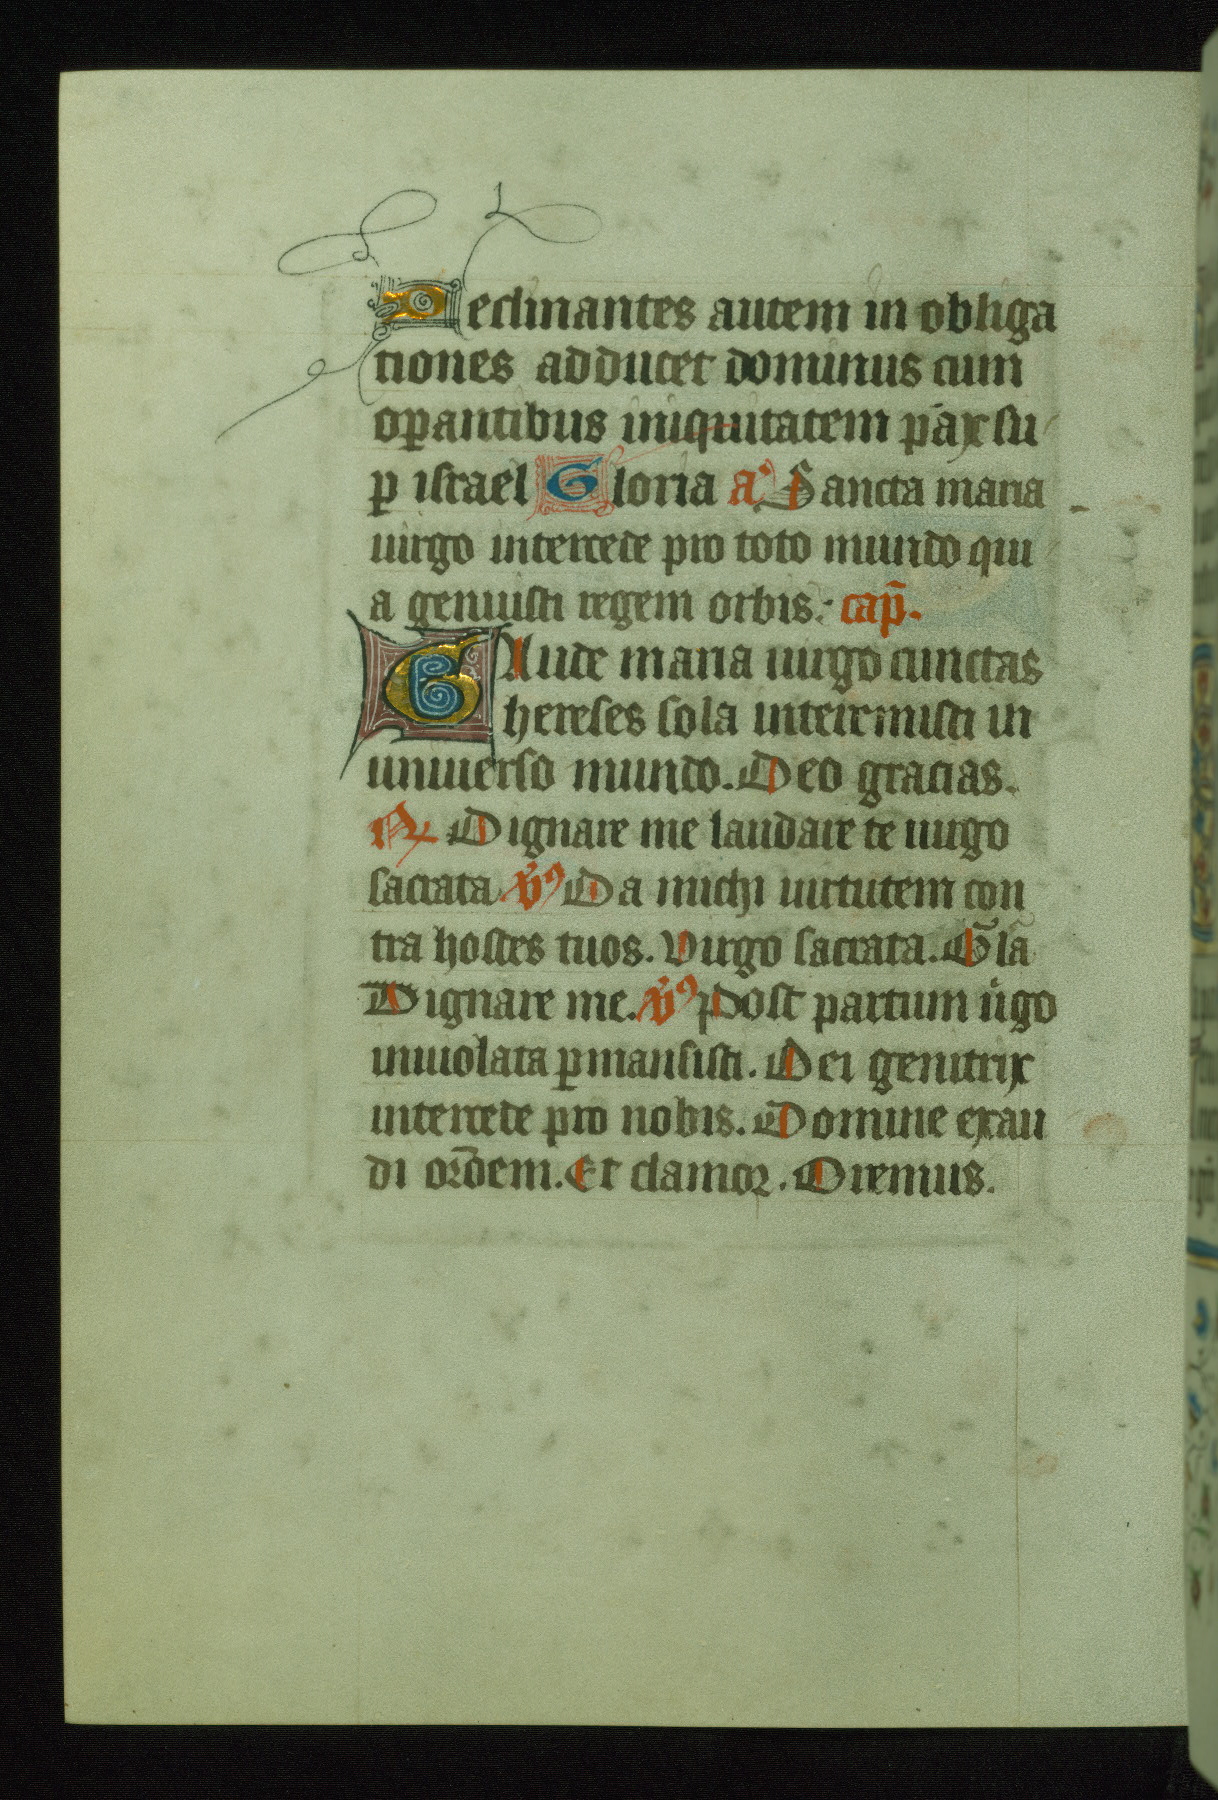 Declinantes autem in obliga
tiones adducet dominus cum
oꝑantibus iniquitatem pax su
ꝑ israel Gloria aͣ Sancta maria
uirgo intercede pro toto mundo qui
a genuisti regem orbis. cap̄.
GAude maria uirgo cunctas
hereses sola interemisti in
uniuerso mundo. Deo gracias.
℟ Dignare me laudare te uirgo
sacrata ꝟ Da michi uirtutem con
tra hostes tuos. Virgo sacrata. Gl̄a
Dignare me. ꝟ Post partum u̇go
inuiolata ꝑmansisti. Dei genitrix
intercede pro nobis. Domine exau
di or̄oem. Et clamor. Oremus.